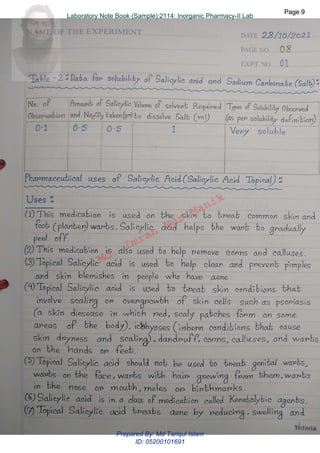 Laboratory Note Book (Sample),2114: Inorganic Pharmacy-II Lab
Page 9
NAME OF THE EXPERIMENT
DATE 28/10/2021
PAGE NO 08
EXPT. NO. 01
Table-2: Data for solubility of Salicylic acid and Sodium Carbonate (Salt):
No. of Observation
Amounts of Salicylic acid Na2CO3 taken (gm)
Volume of solvent Required to dissolve Salt (ml)
Types of Solubility Observed (as per solubility definition)
0.1 0.5 0.5 1 Very soluble
Pharmaceutical uses of Salicylic Acid (Salicylic Acid Topical):
Uses:
(1) This medication is used on the skin to treat common skin and
foot (planter) warts. Salicylic acid helps the wart to gradually
peel off.
(2) This medication is also used to help remove corns and calluses.
(3) Topical Salicylic acid is used to help clear and prevent pimples
and skin blemishes in people who have acne.
(4) Topical Salicylic acid is used to treat skin conditions that
involve scaling or overgrowth of skin cells such as psoriasis
(a skin diesease in which red, scaly patches form on some
areas of the body), ichthyoses (inborn conditions that cause
skin dryness and scaling), dandruff, corns, calluses, and warts
on the hands or feet.
(5) Topical Salicylic acid should not be used to treat genital warts,
warts on the face, warts with hair growing from them, warts
in the nose or mouth, moles or birthmarks.
(6) Salicylic acid is in a class of medication called Keratolytic agents.
(7) Topical Salicylic acid treats acne by reducing, swelling and
Victoria
Prepared By: Md Tarequl Islam
ID: 05200101691